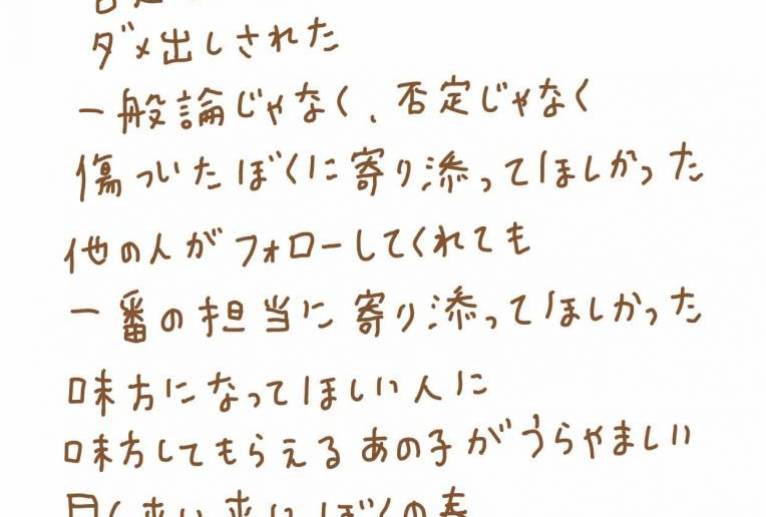 ダメ出しされた
一般論じゃなく、否定じゃなく
傷ついたぼくに寄り添ってほしかった
他の人がフォローしてくれても
一番の担当に寄り添ってほしかった
味方になってほしい人に
味方してもらえるあの子がうらやましい